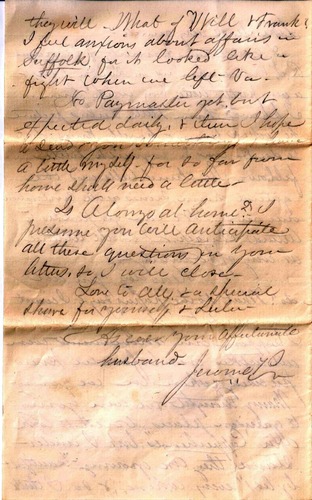 they will. What of Will & Frank.
I feel anxious about affairs in
Suffolk for it looked like a
fight when we left Va.
No Paymaster yet, but
expected daily, & then I hope
to send you
a little myself for so far from
home shall need a little
Is Alonzo at home? I
presume you will anticipate
all these questions in your
letters, so I will close
Love to all & a special
share for yourself & Lulu
your affectionate
husband
Jerome